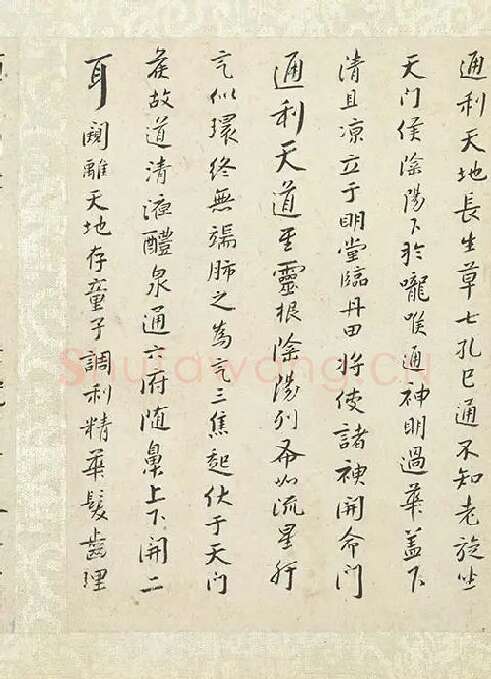 通利天地長生草七孔已通不知老旋坐
天门侯陰陽下於嚨喉通神明過華蓋下
清且凉立于明堂臨丹田将使諸神開命門
通利天道至靈根陰陽列布如流星肝
气似環終無端肺之為气三焦起伏于天门
侯故道清液醴泉通六府随鼻上下開二
耳闚離天地存童子調利精華髮齒理
Shufawang.cn